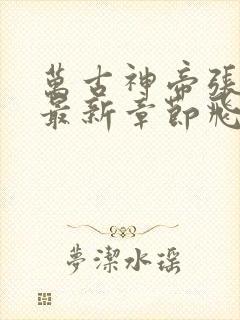 萬古神帝張
最新章節飛
夢潔水瑤